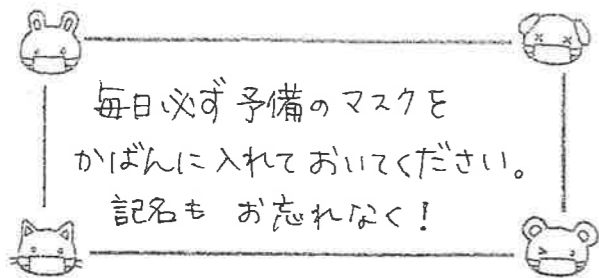 毎日必ず予備のマスクを
かばんに入れておいてください。
記名も お忘れなく！